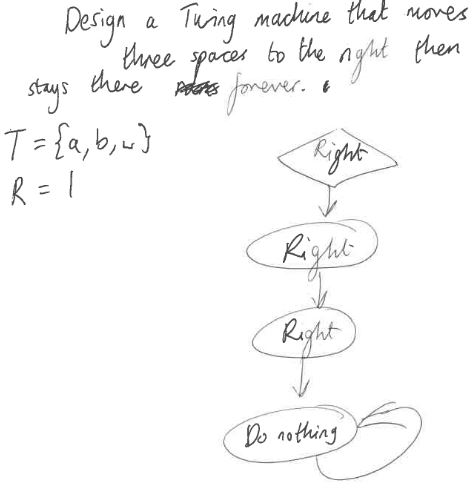 Design a Turing machine that moves
three spaces to the right then
stays there forever.
T = {a, b, ␣}
R = 1
Right
Right
Right
Do nothing